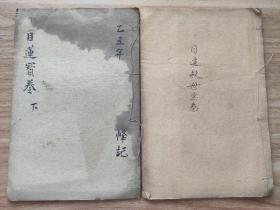 乙丑年
目蓮寶卷 下
降記
目蓮救母宝卷